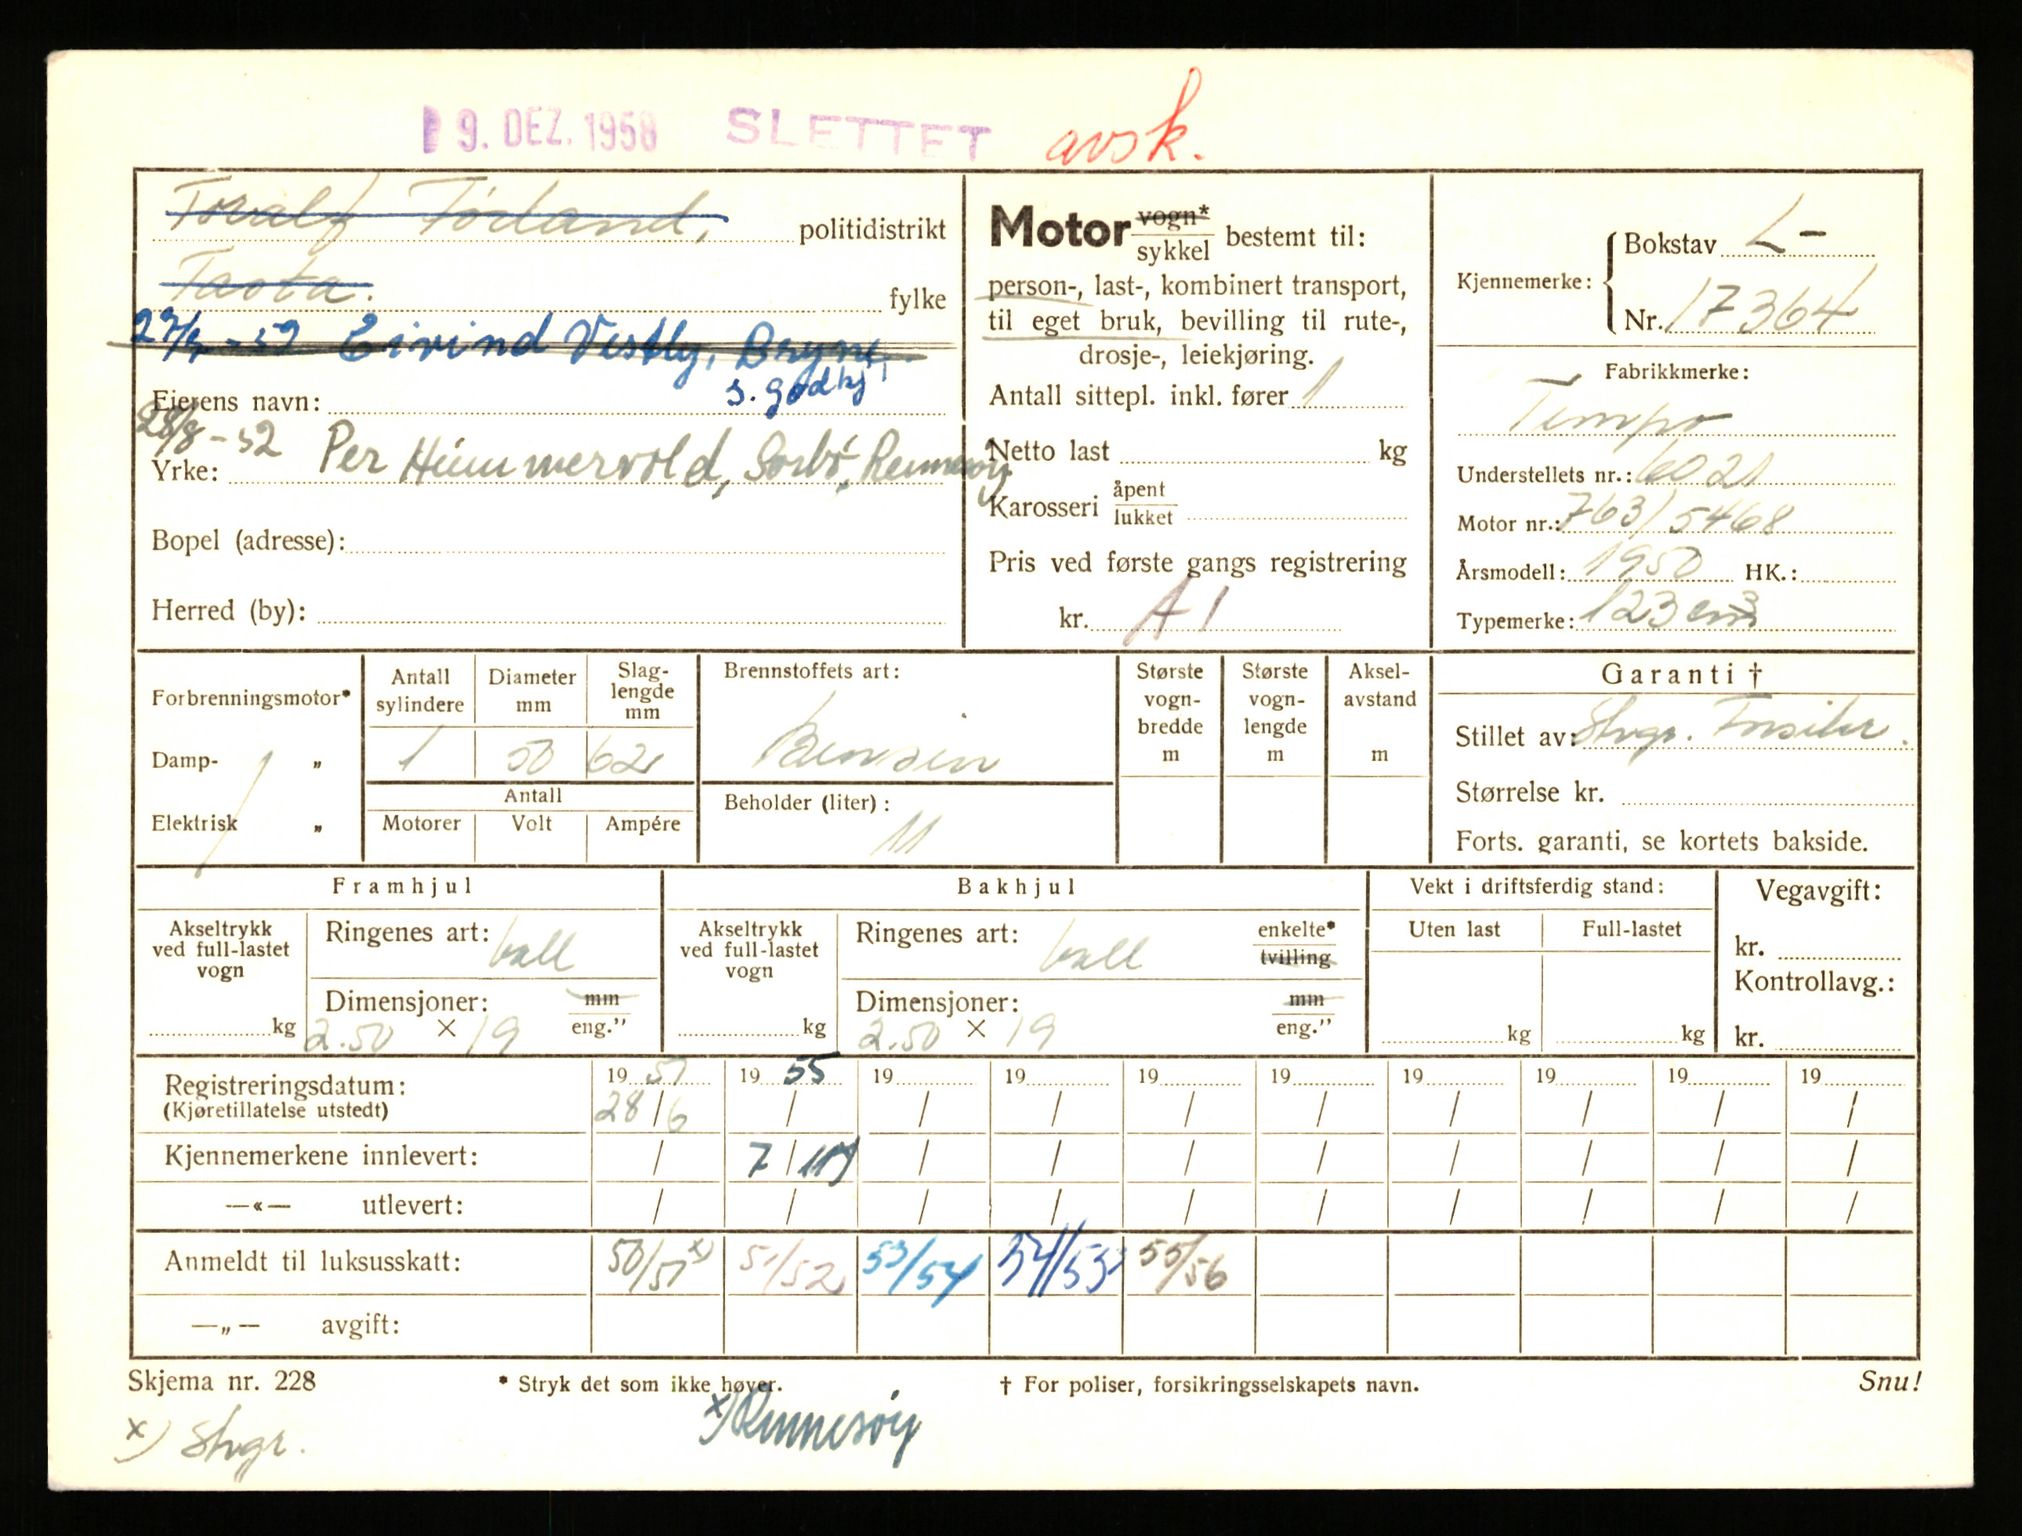 9. DEZ. 1958 SLETTET avsk.
Toralf Tørland, politidistrikt
Tasta. fylke
Eivind Vestly, Bryne,
s. godkj
Eierens navn:
28/8-52 Per Hummervold, Sørbø, Rennesøy
Yrke:
Bopel (adresse):
Herred (by):
Motor vogn* sykkel bestemt til:
person-, last-, kombinert transport,
til eget bruk, bevilling til rute-,
drosje-, leiekjøring.
Antall sittepl. inkl. fører 1
Netto last kg
Karosseri åpent lukket
Pris ved første gangs registrering
kr. A 1
Kjennemerke: Bokstav L-
Nr. 17364
Fabrikkmerke:
Tempo
Understellets nr.: 6021
Motor nr.: 763/5468
Årsmodell: 1950 HK.:
Typemerke: 123 cm3
Forbrenningsmotor*
Damp- „
Elektrisk „
Antall sylindere Diameter mm Slag-lengde mm
1 50 62
Antall
Motorer Volt Ampére
Brennstoffets art:
Bensin
Beholder (liter):
11
Største vogn-bredde m
Største vogn-lengde m
Aksel-avstand m
Garanti †
Stillet av: Stvgr. Forsikr.
Størrelse kr.
Forts. garanti, se kortets bakside.
Framhjul
Akseltrykk ved full-lastet vogn
kg
Ringenes art: ball
Dimensjoner: mm
2.50 × 19 eng."
Bakhjul
Akseltrykk ved full-lastet vogn
kg
Ringenes art: ball enkelte* tvilling
Dimensjoner: mm
2.50 × 19 eng."
Vekt i driftsferdig stand:
Uten last Full-lastet
kg kg
Vegavgift:
kr.
Kontrollavg.:
kr.
Registreringsdatum: 19 51 19 55 19 19 19 19 19 19 19 19
(Kjøretillatelse utstedt) 28/6 / / / / / / / / /
Kjennemerkene innlevert: / 7/ / / / / / / / /
—«— utlevert: / / / / / / / / / /
Anmeldt til luksusskatt: 50/51 x) 51/52 53/54 54/53 55/56
—„— avgift:
Skjema nr. 228 * Stryk det som ikke høver. † For poliser, forsikringsselskapets navn. Snu!
x) Stvgr. x) Rennesøy